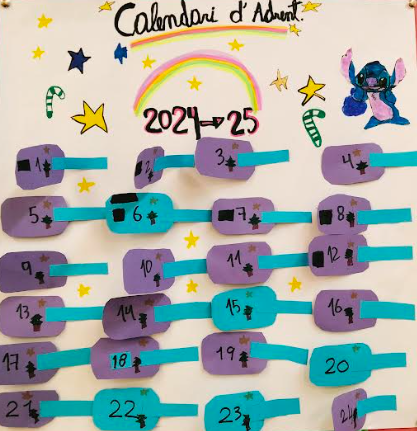 Calendari d'Advent.
2024→25
1 2 3 4
5 6 7 8
9 10 11 12
13 14 15 16
17 18 19 20
21 22 23 24